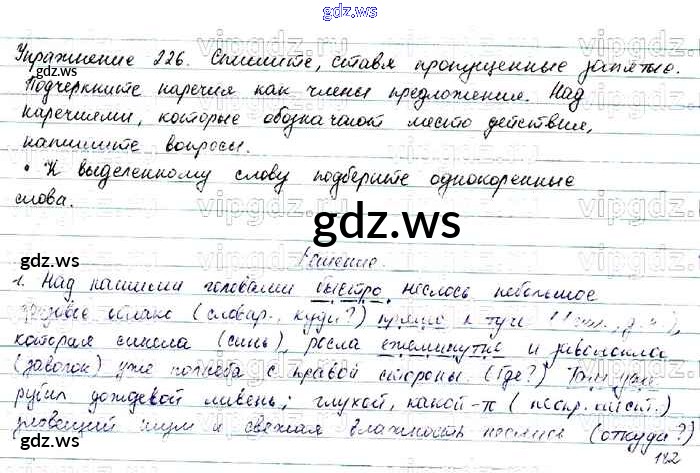 gdz.ws
Упражнение 226. Спишите, ставя пропущенные запятые.
gdz.ws
Подчеркните наречия как члены предложения. Над
наречиями, которые обозначают место действия,
напишите вопросы.
• К выделенному слову подберите однокоренные
слова.
gdz.ws
gdz.ws
Решение.
1. Над нашими головами быстро неслось небольшое
облако (словар., куди?) прямо к туче
которая синела (синь), росла ежеминутно и заволокла
(заволок) уже полнеба с правой стороны. (Где?) Там уже
рубил дождевой ливень; глухой, какой-то
зловещий шум и свежая влажность неслись (откуда?)
gdz.ws
gdz.ws
142